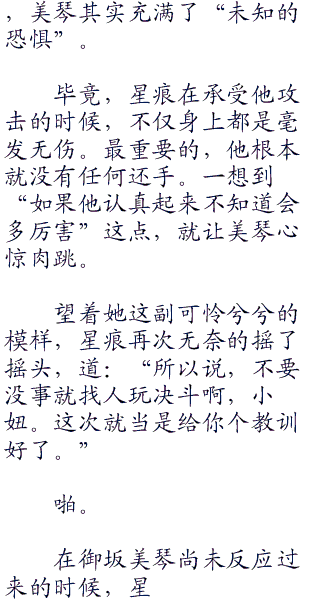 ，美琴其实充满了“未知的
恐惧”。
毕竟，星痕在承受他攻
击的时候，不仅身上都是毫
发无伤。最重要的，他根本
就没有任何还手。一想到
“如果他认真起来不知道会
多厉害”这点，就让美琴心
惊肉跳。
望着她这副可怜兮兮的
模样，星痕再次无奈的摇了
摇头，道：“所以说，不要
没事就找人玩决斗啊，小
妞。这次就当是给你个教训
好了。”
啪。
在御坂美琴尚未反应过
来的时候，星